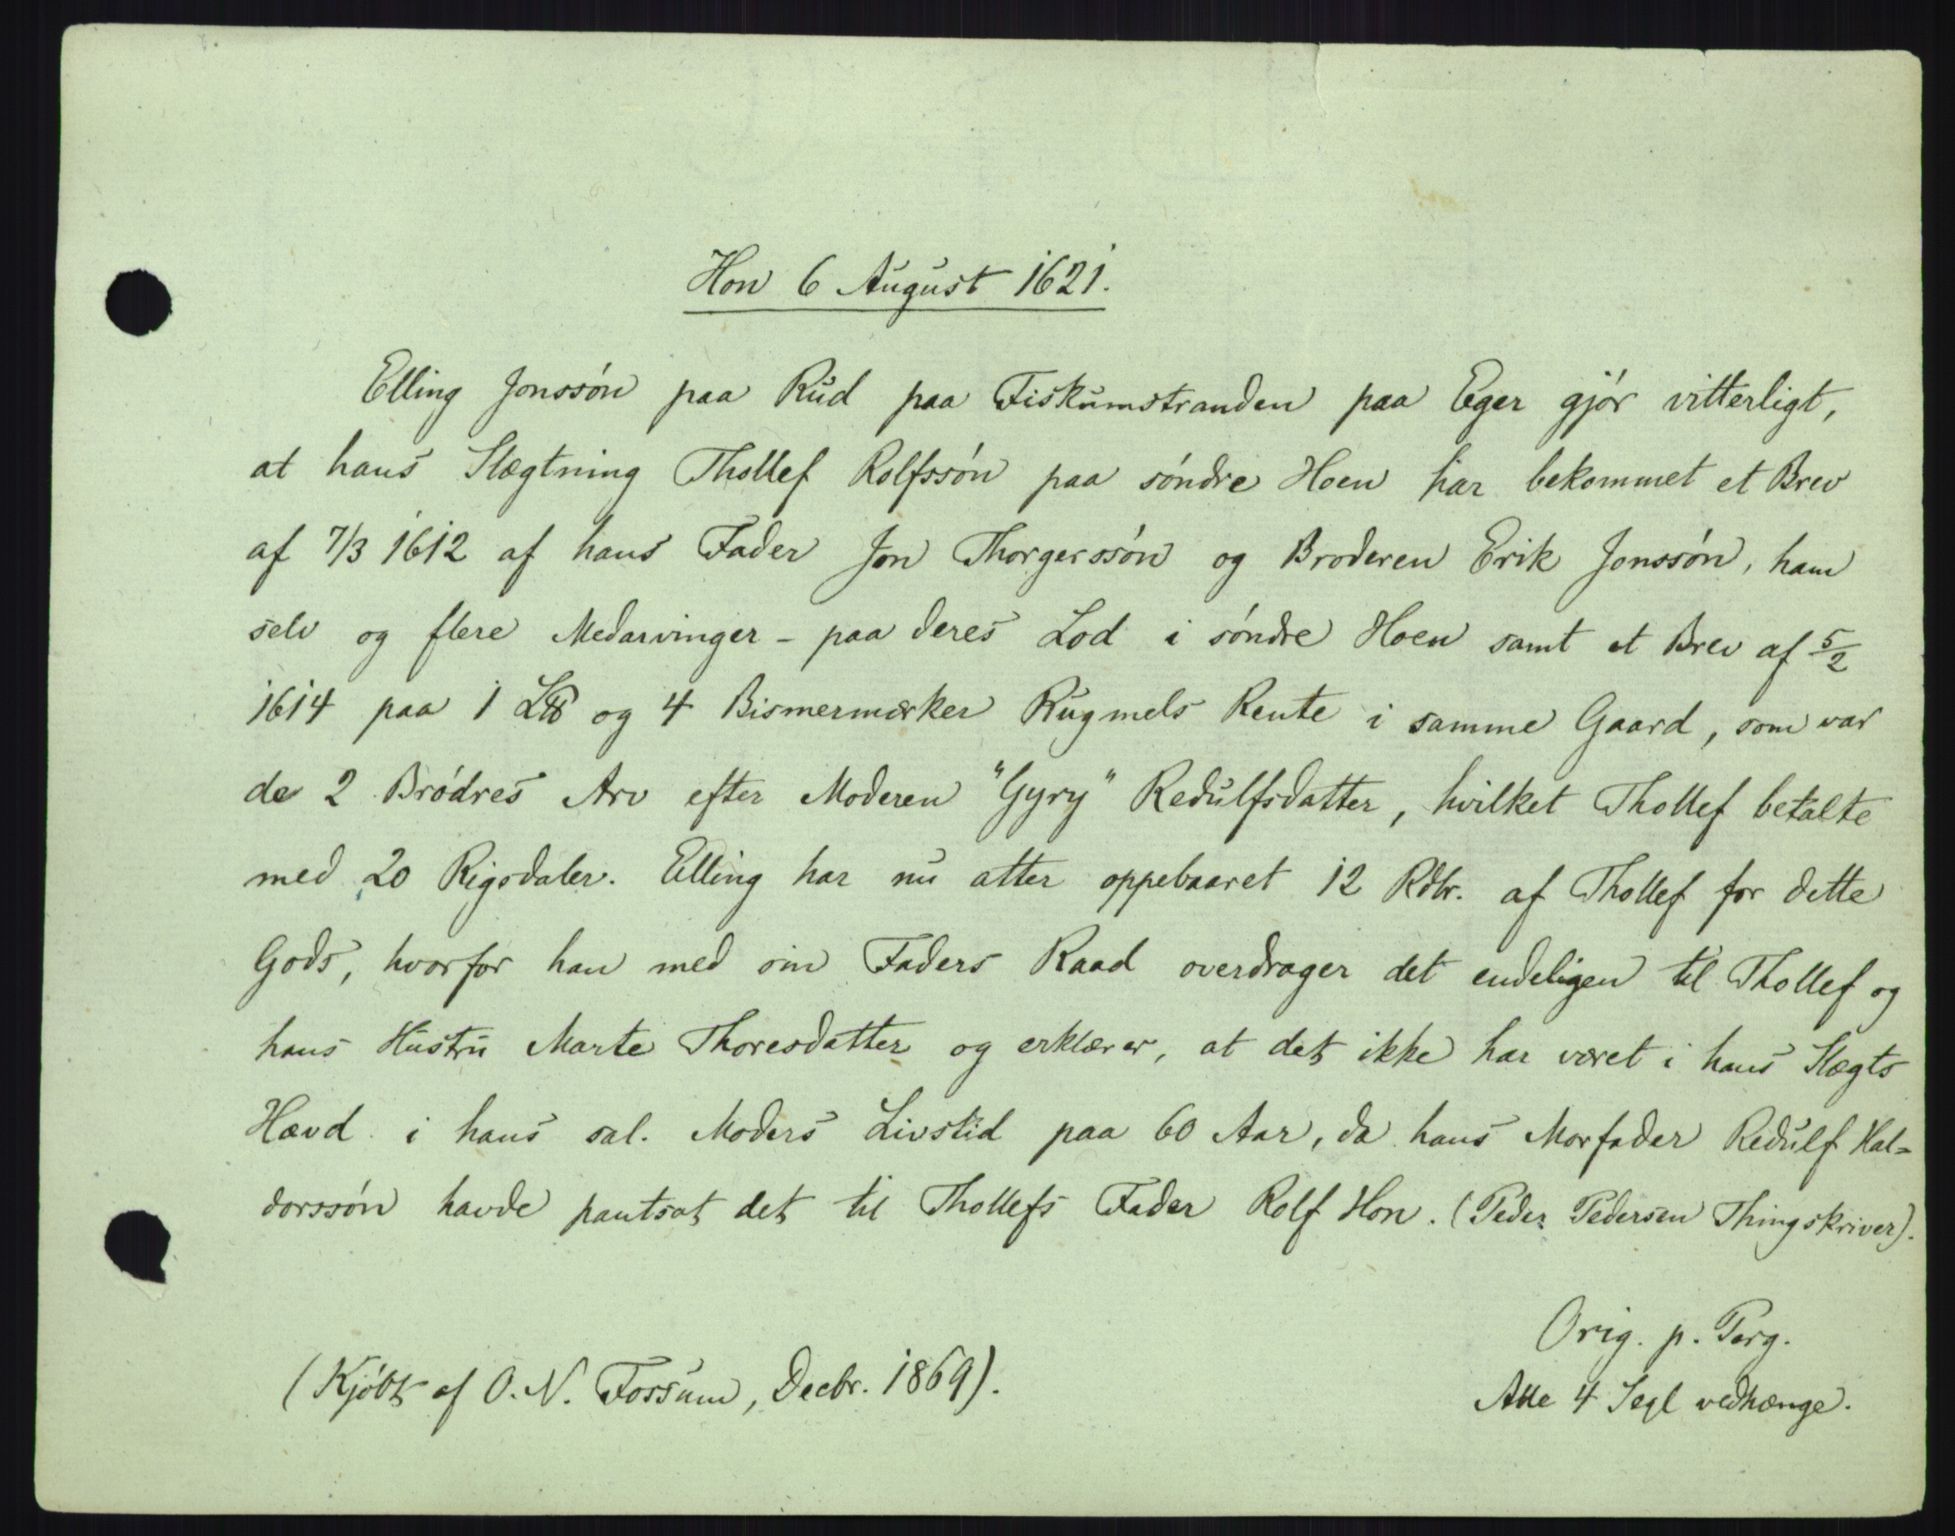 Hon 6 August 1621.
Elling Jonssón paa Rud paa Fiskumstranden paa Eger gjór vitterligt,
at hans Slægtning Thollef Rolfssón paa sóndre Hoen har bekommet et Brev
af 7/3 1612 af hans Fader Jon Thorgerssón og Broderen Erik Jonssón, ham
selv og flere Medarvinger - paa deres Lod i sóndre Hoen samt et Brev af 5/2
1614 paa 1 L℔ og 4 Bismermærker Rugmels Rente i samme Gaard, som var
de 2 Bródres Arv efter Moderen "Gyry" Redulfsdatter, hvilket Thollef betalte
med 20 Rigsdaler. Elling har nu atter oppebaaret 12 Rdlr. af Thollef for dette
Gods, hvorfor han med sin Faders Raad overdrager det endeligen til Thollef og
hans Hustru Marte Thoresdatter og erklærer, at det ikke har været i hans Slægts
Hævd i hans sal. Moders Livstid paa 60 Aar, da hans Morfader Redulf Hal=
dorssón havde pantsat det til Thollefs Fader Rolf Hon. (Peder Pedersen Thingskriver).
Orig. p. Perg.
(Kjóbt af O. N. Fossum, Decbr. 1869).
Alle 4 Segl vedhænge.